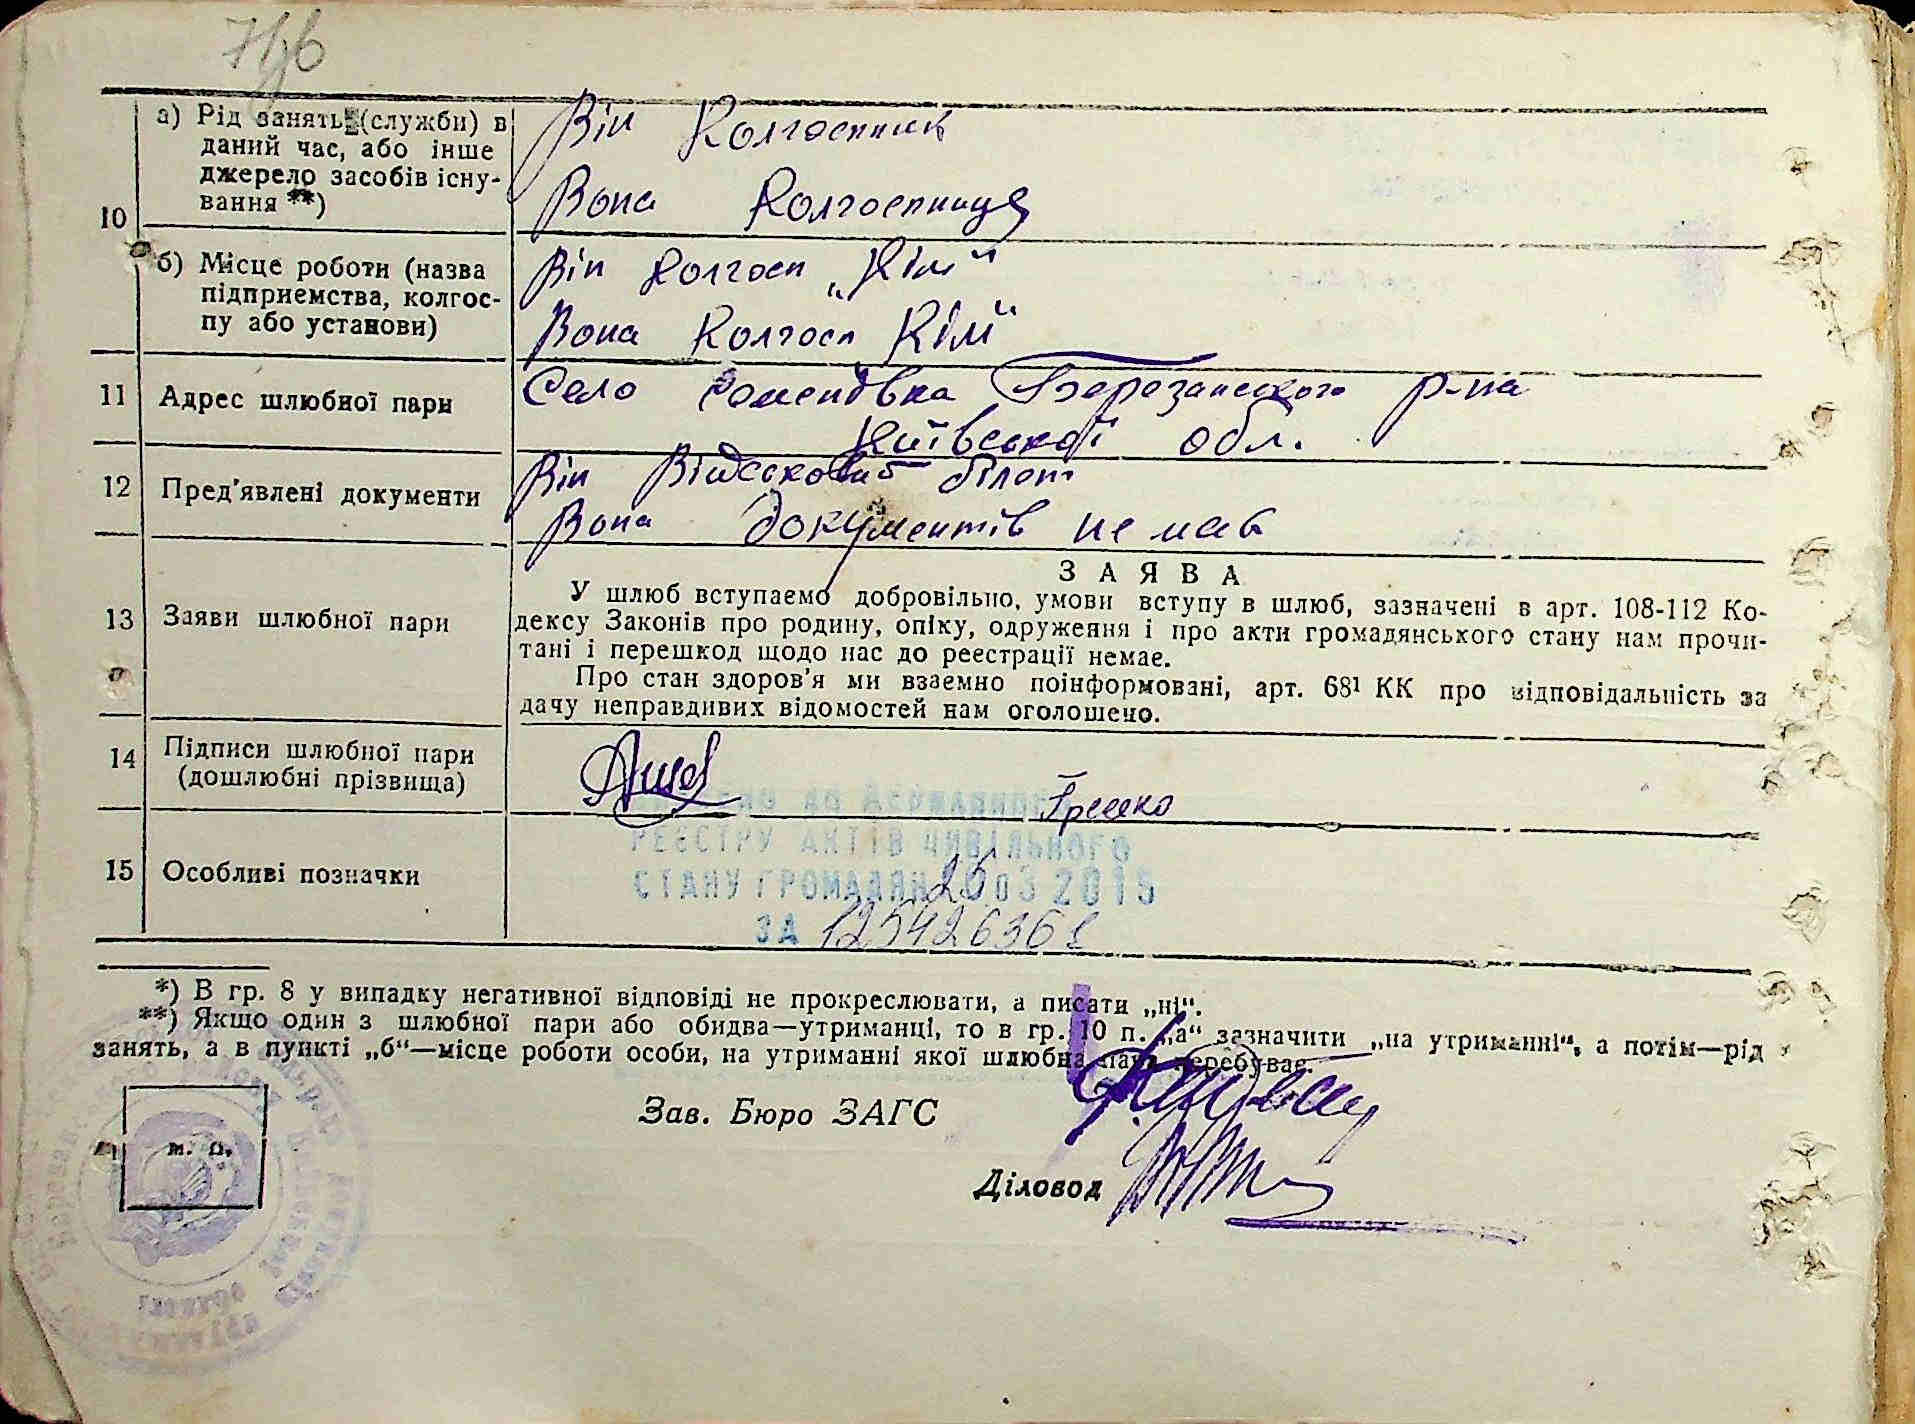 71/6
а) Рід занять (служби) в
даний час, або інше
джерело засобів існу-
вання **)
10
Він Колгоспник
Вона Колгоспниця
б) Місце роботи (назва
підприємства, колгос-
пу або установи)
Він колгосп „Кім"
Вона Колгосп Кім"
11 Адрес шлюбної пари
Село Семенівка Березанського р-на
Київської обл.
12 Пред'явлені документи
Він Війсковий білет
Вона документів не має
13 Заяви шлюбної пари
ЗАЯВА
У шлюб вступаємо добровільно, умови вступу в шлюб, зазначені в арт. 108-112 Ко-
дексу Законів про родину, опіку, одруження і про акти громадянського стану нам прочи-
тані і перешкод щодо нас до реєстрації немає.
Про стан здоров'я ми взаємно поінформовані, арт. 68¹ КК про відповідальність за
дачу неправдивих відомостей нам оголошено.
14 Підписи шлюбної пари
(дошлюбні прізвища)
Грешко
15 Особливі позначки
до Державного
РЕЄСТРУ АКТІВ ЦИВІЛЬНОГО
СТАНУ ГРОМАДЯН 03 2015
ЗА
*) В гр. 8 у випадку негативної відповіді не прокреслювати, а писати „ні".
**) Якщо один з шлюбної пари або обидва—утриманці, то в гр. 10 п. „а" зазначити „на утриманні", а потім—рід
занять, а в пункті „б"—місце роботи особи, на утриманні якої шлюбна пара перебуває.
Зав. Бюро ЗАГС
м. п.
Діловод